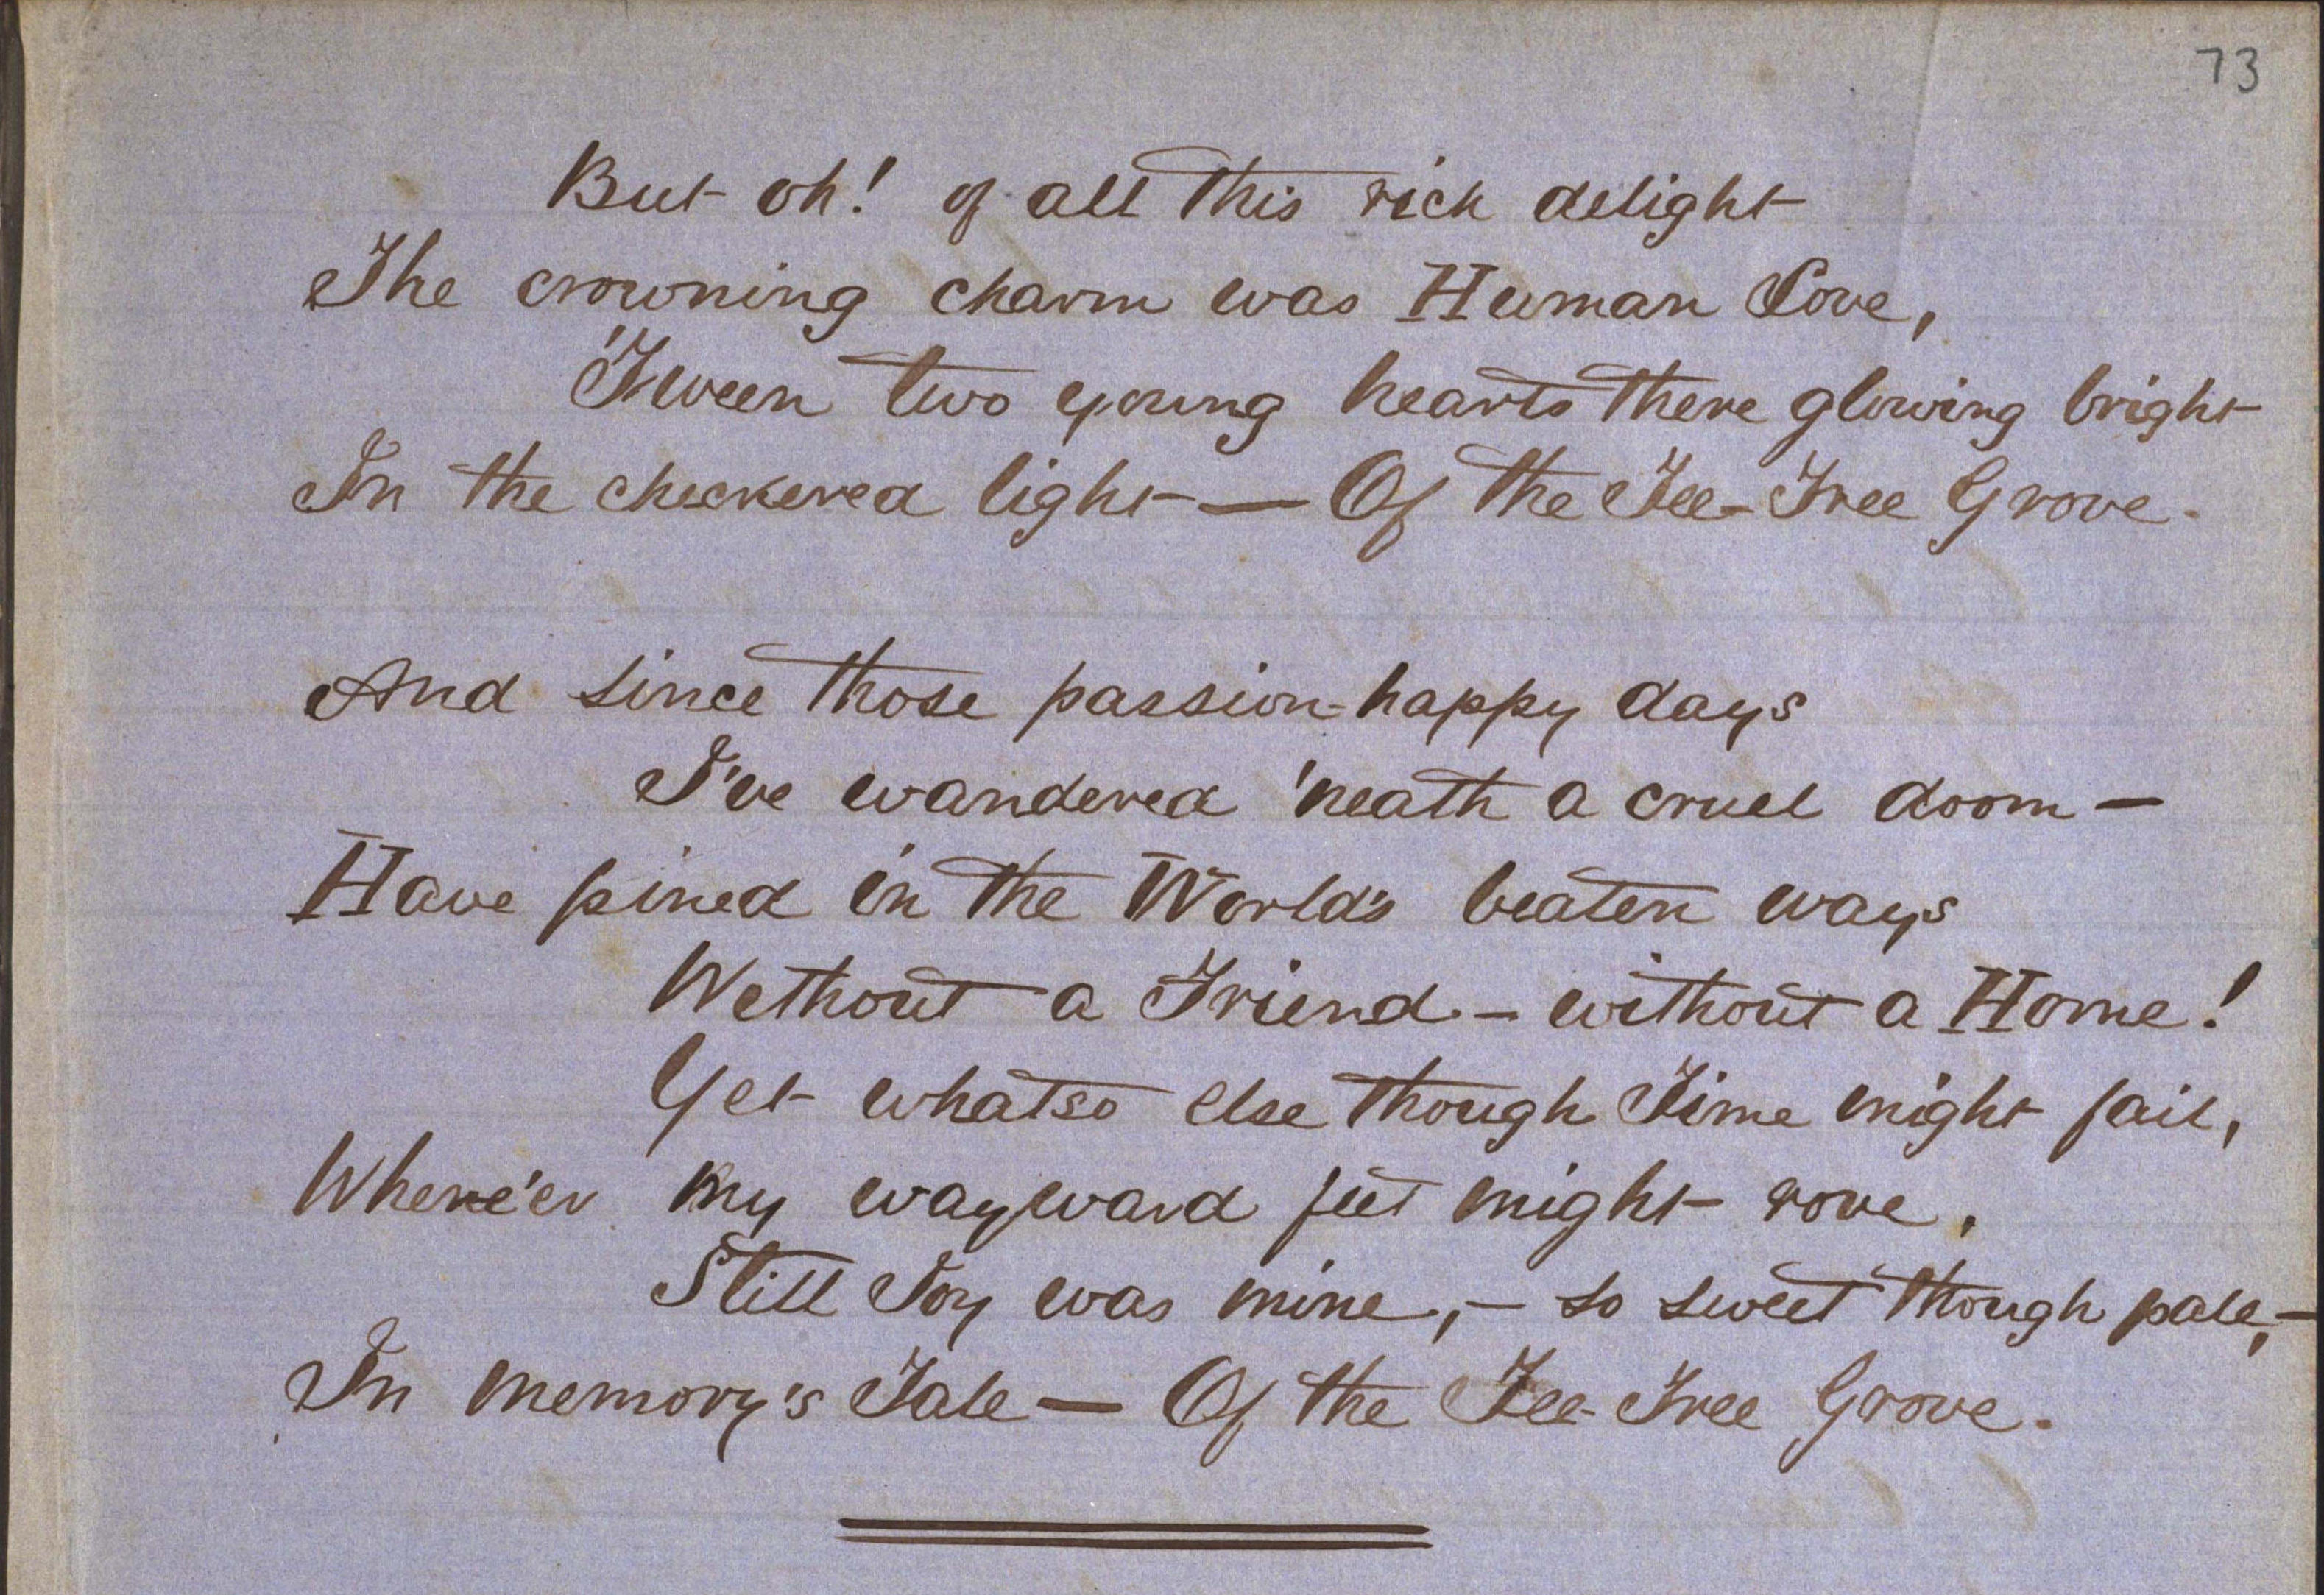 73
But oh! of all this rich delight
The crowning charm was Human Love,
'Tween two young hearts there glowing bright
In the checkered light — Of the Tee-Tree Grove.
And since those passion-happy days
I've wandered 'neath a cruel doom —
Have pined in the World's beaten ways
Without a Friend — without a Home!
Yet whatso else though Time might fail,
Where'er my wayward feet might rove,
Still Joy was mine, — so sweet though pale, —
In memory's Tale — Of the Tee-Tree Grove.